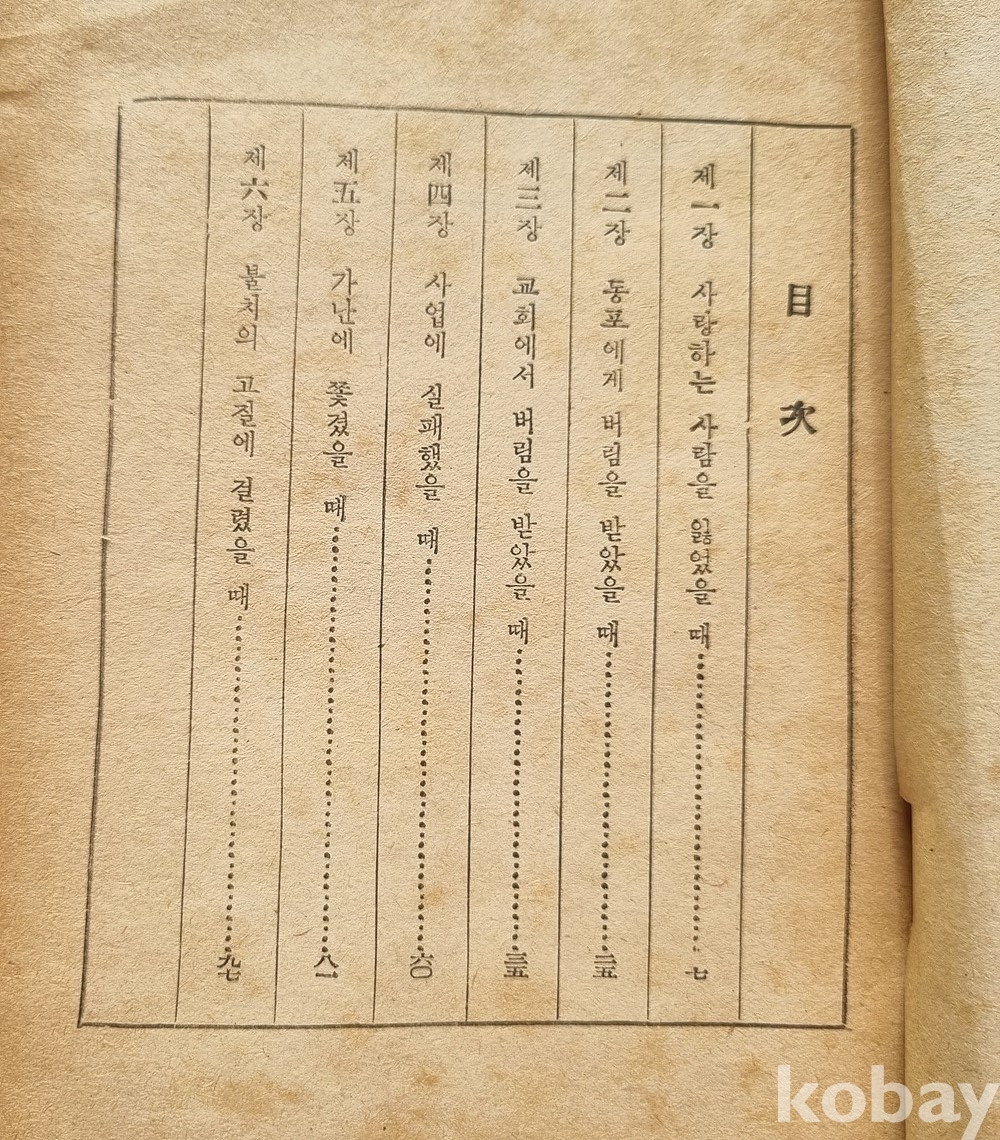 目次
제一장 사랑하는 사람을 잃었을 때……七
제二장 동포에게 버림을 받았을 때……二五
제三장 교회에서 버림을 받았을 때……三五
제四장 사업에 실패했을 때……六〇
제五장 가난에 쫓겼을 때……八一
제六장 불치의 고질에 걸렸을 때……九七
kobay